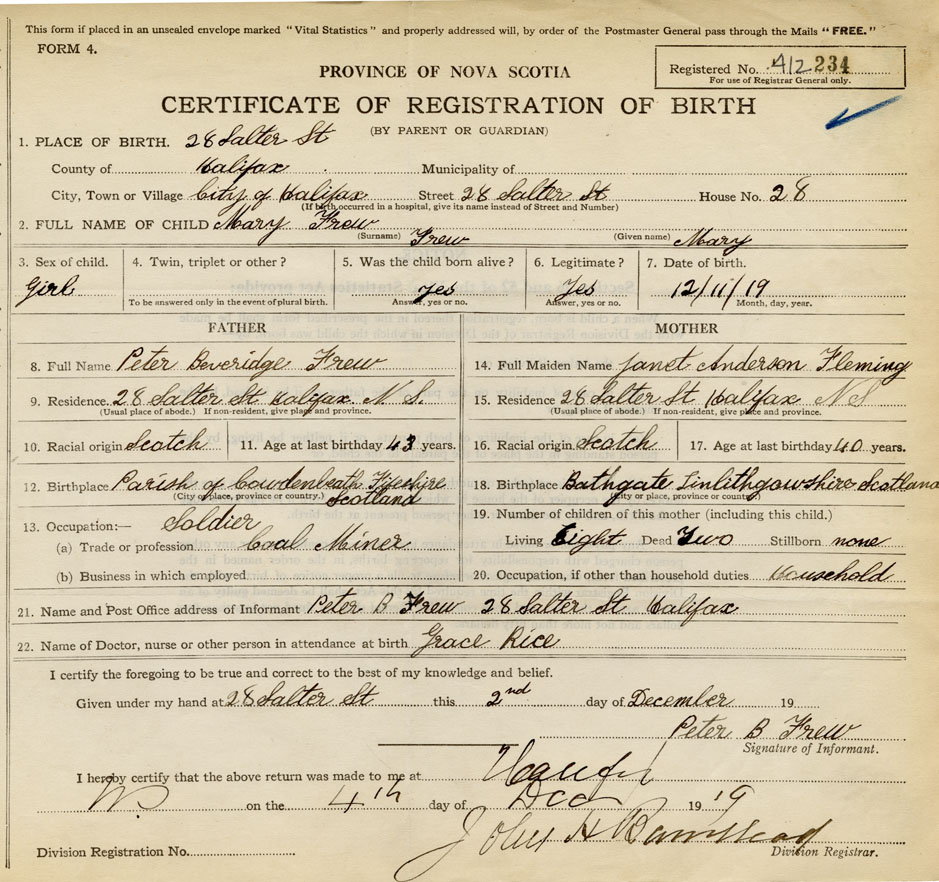 This form if placed in an unsealed envelope marked "Vital Statistics" and properly addressed will, by order of the Postmaster General pass through the Mails "FREE."
FORM 4.
Registered No. 412 234
For use of Registrar General only.
PROVINCE OF NOVA SCOTIA
CERTIFICATE OF REGISTRATION OF BIRTH
(BY PARENT OR GUARDIAN)
1. PLACE OF BIRTH. 28 Salter St
County of Halifax Municipality of
City, Town or Village City of Halifax Street 28 Salter St House No. 28
(If birth occurred in a hospital, give its name instead of Street and Number)
2. FULL NAME OF CHILD Mary Frew (Surname) Frew (Given name) Mary
3. Sex of child. Girl
4. Twin, triplet or other?
To be answered only in the event of plural birth.
5. Was the child born alive? yes
Answer, yes or no.
6. Legitimate? Yes
Answer, yes or no.
7. Date of birth. 12/11/19
Month, day, year.
FATHER
8. Full Name Peter Beveridge Frew
9. Residence. 28 Salter St Halifax N.S.
(Usual place of abode.) If non-resident, give place and province.
10. Racial origin Scotch 11. Age at last birthday 43 years.
12. Birthplace Parish of Cowdenbeath Fifeshire
(City or place, province or country.) Scotland
13. Occupation:— Soldier
(a) Trade or profession Coal Miner
(b) Business in which employed
MOTHER
14. Full Maiden Name Janet Anderson Fleming
15. Residence 28 Salter St Halifax N S
(Usual place of abode.) If non-resident, give place and province.
16. Racial origin Scotch 17. Age at last birthday 40 years.
18. Birthplace Bathgate Linlithgowshire Scotland
(City or place, province or country)
19. Number of children of this mother (including this child.)
Living Eight Dead Two Stillborn none
20. Occupation, if other than household duties Household
21. Name and Post Office address of Informant Peter B Frew 28 Salter St Halifax
22. Name of Doctor, nurse or other person in attendance at birth Grace Rice
I certify the foregoing to be true and correct to the best of my knowledge and belief.
Given under my hand at 28 Salter St this 2nd day of December 19
Peter B Frew
Signature of Informant.
I hereby certify that the above return was made to me at
on the 4th day of Dec 19 '19
John H
Division Registration No. Division Registrar.